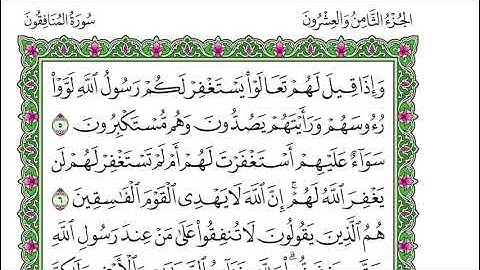 الجُزْءُ الثَّامِنُ وَالعِشْرُونَ سُورَةُ المُنَافِقُونَ
وَإِذَا قِيلَ لَهُمْ تَعَالَوْا۟ يَسْتَغْفِرْ لَكُمْ رَسُولُ ٱللَّهِ لَوَّوْا۟
رُءُوسَهُمْ وَرَأَيْتَهُمْ يَصُدُّونَ وَهُم مُّسْتَكْبِرُونَ ٥
سَوَآءٌ عَلَيْهِمْ أَسْتَغْفَرْتَ لَهُمْ أَمْ لَمْ تَسْتَغْفِرْ لَهُمْ لَن
يَغْفِرَ ٱللَّهُ لَهُمْ ۚ إِنَّ ٱللَّهَ لَا يَهْدِى ٱلْقَوْمَ ٱلْفَٰسِقِينَ ٦
هُمُ ٱلَّذِينَ يَقُولُونَ لَا تُنفِقُوا۟ عَلَىٰ مَنْ عِندَ رَسُولِ ٱللَّهِ